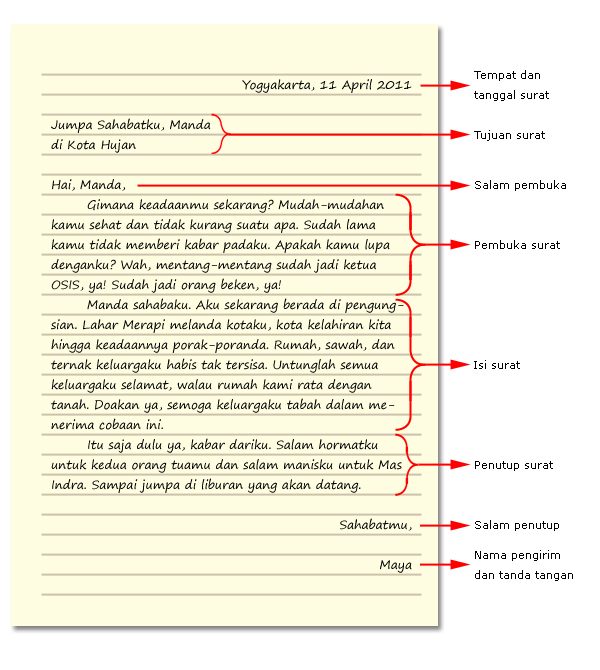 Yogyakarta, 11 April 2011
Tempat dan
tanggal surat
Jumpa Sahabatku, Manda
di Kota Hujan
Tujuan surat
Hai, Manda,
Salam pembuka
Gimana keadaanmu sekarang? Mudah-mudahan
kamu sehat dan tidak kurang suatu apa. Sudah lama
kamu tidak memberi kabar padaku. Apakah kamu lupa
denganku? Wah, mentang-mentang sudah jadi ketua
OSIS, ya! Sudah jadi orang beken, ya!
Pembuka surat
Manda sahabaku. Aku sekarang berada di pengung-
sian. Lahar Merapi melanda kotaku, kota kelahiran kita
hingga keadaannya porak-poranda. Rumah, sawah, dan
ternak keluargaku habis tak tersisa. Untunglah semua
keluargaku selamat, walau rumah kami rata dengan
tanah. Doakan ya, semoga keluargaku tabah dalam me-
nerima cobaan ini.
Isi surat
Itu saja dulu ya, kabar dariku. Salam hormatku
untuk kedua orang tuamu dan salam manisku untuk Mas
Indra. Sampai jumpa di liburan yang akan datang.
Penutup surat
Sahabatmu,
Salam penutup
Maya
Nama pengirim
dan tanda tangan